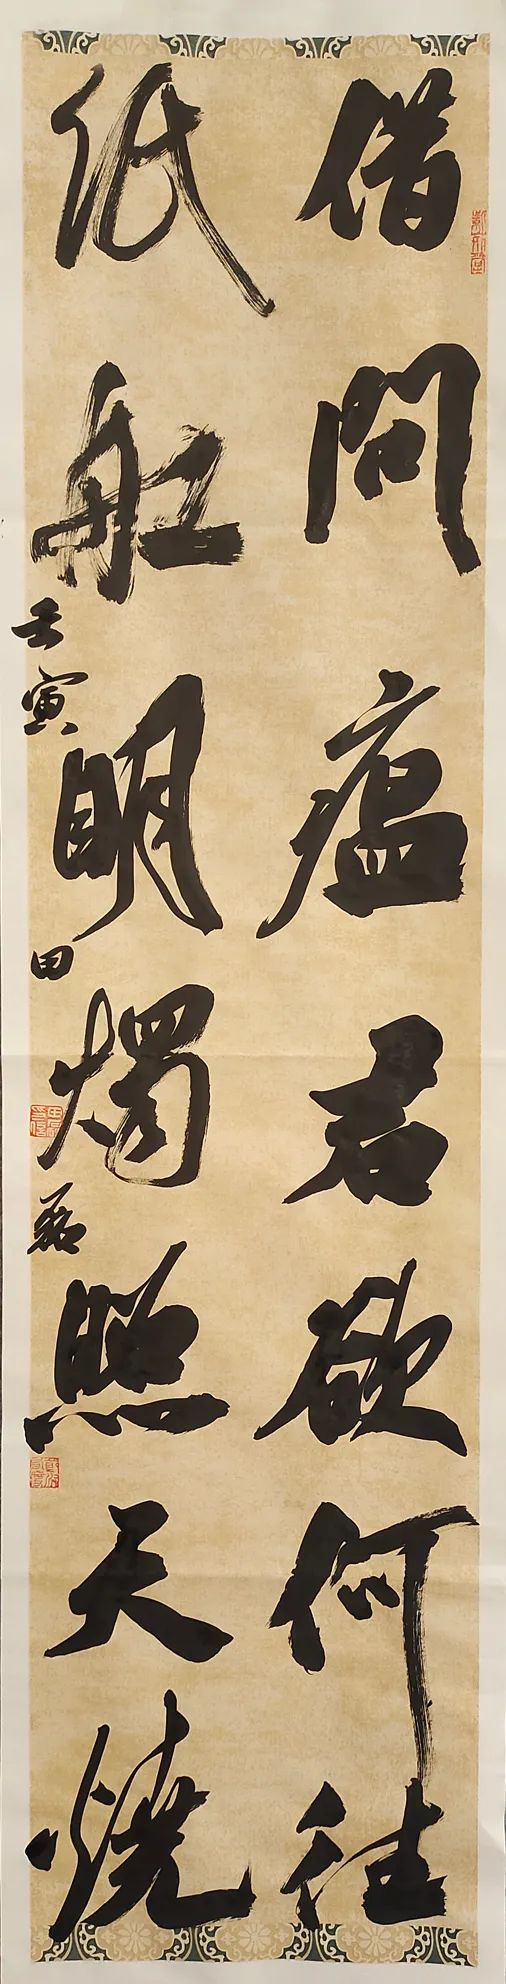 借問瘟君欲何往
紙船明燭照天燒
壬寅
田